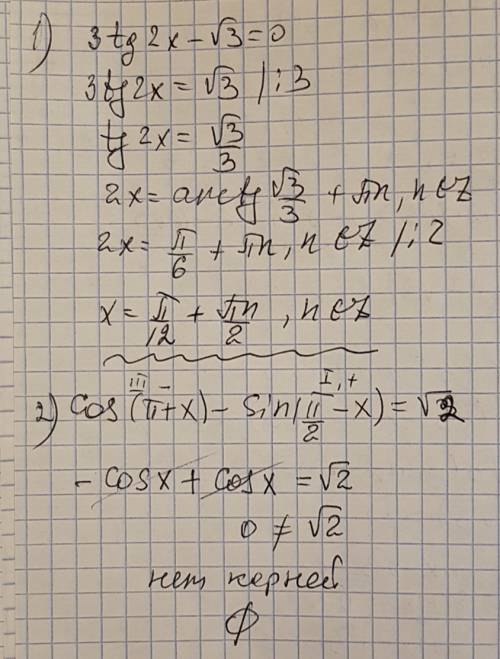 1) 3tg2x - √3 = 0
3tg2x = √3 /:3
tg2x = √3/3
2x = arctg √3/3 + πn, n ∈ Z
2x = π/6 + πn, n ∈ Z /:2
x = π/12 + πn/2, n ∈ Z
III - I, +
2) cos(π+x) - sin(π/2 - x) = √2
- cosx + cosx = √2
0 ≠ √2
нет корней
∅